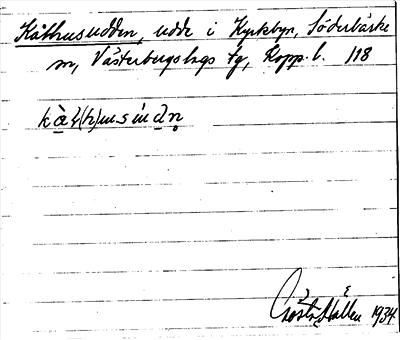 Kåthusudden, udde i Kyrkbyn, Söderbärke
sn, Västerbergslags tg, Kopp. l. 118
Gösta Hallén 1934